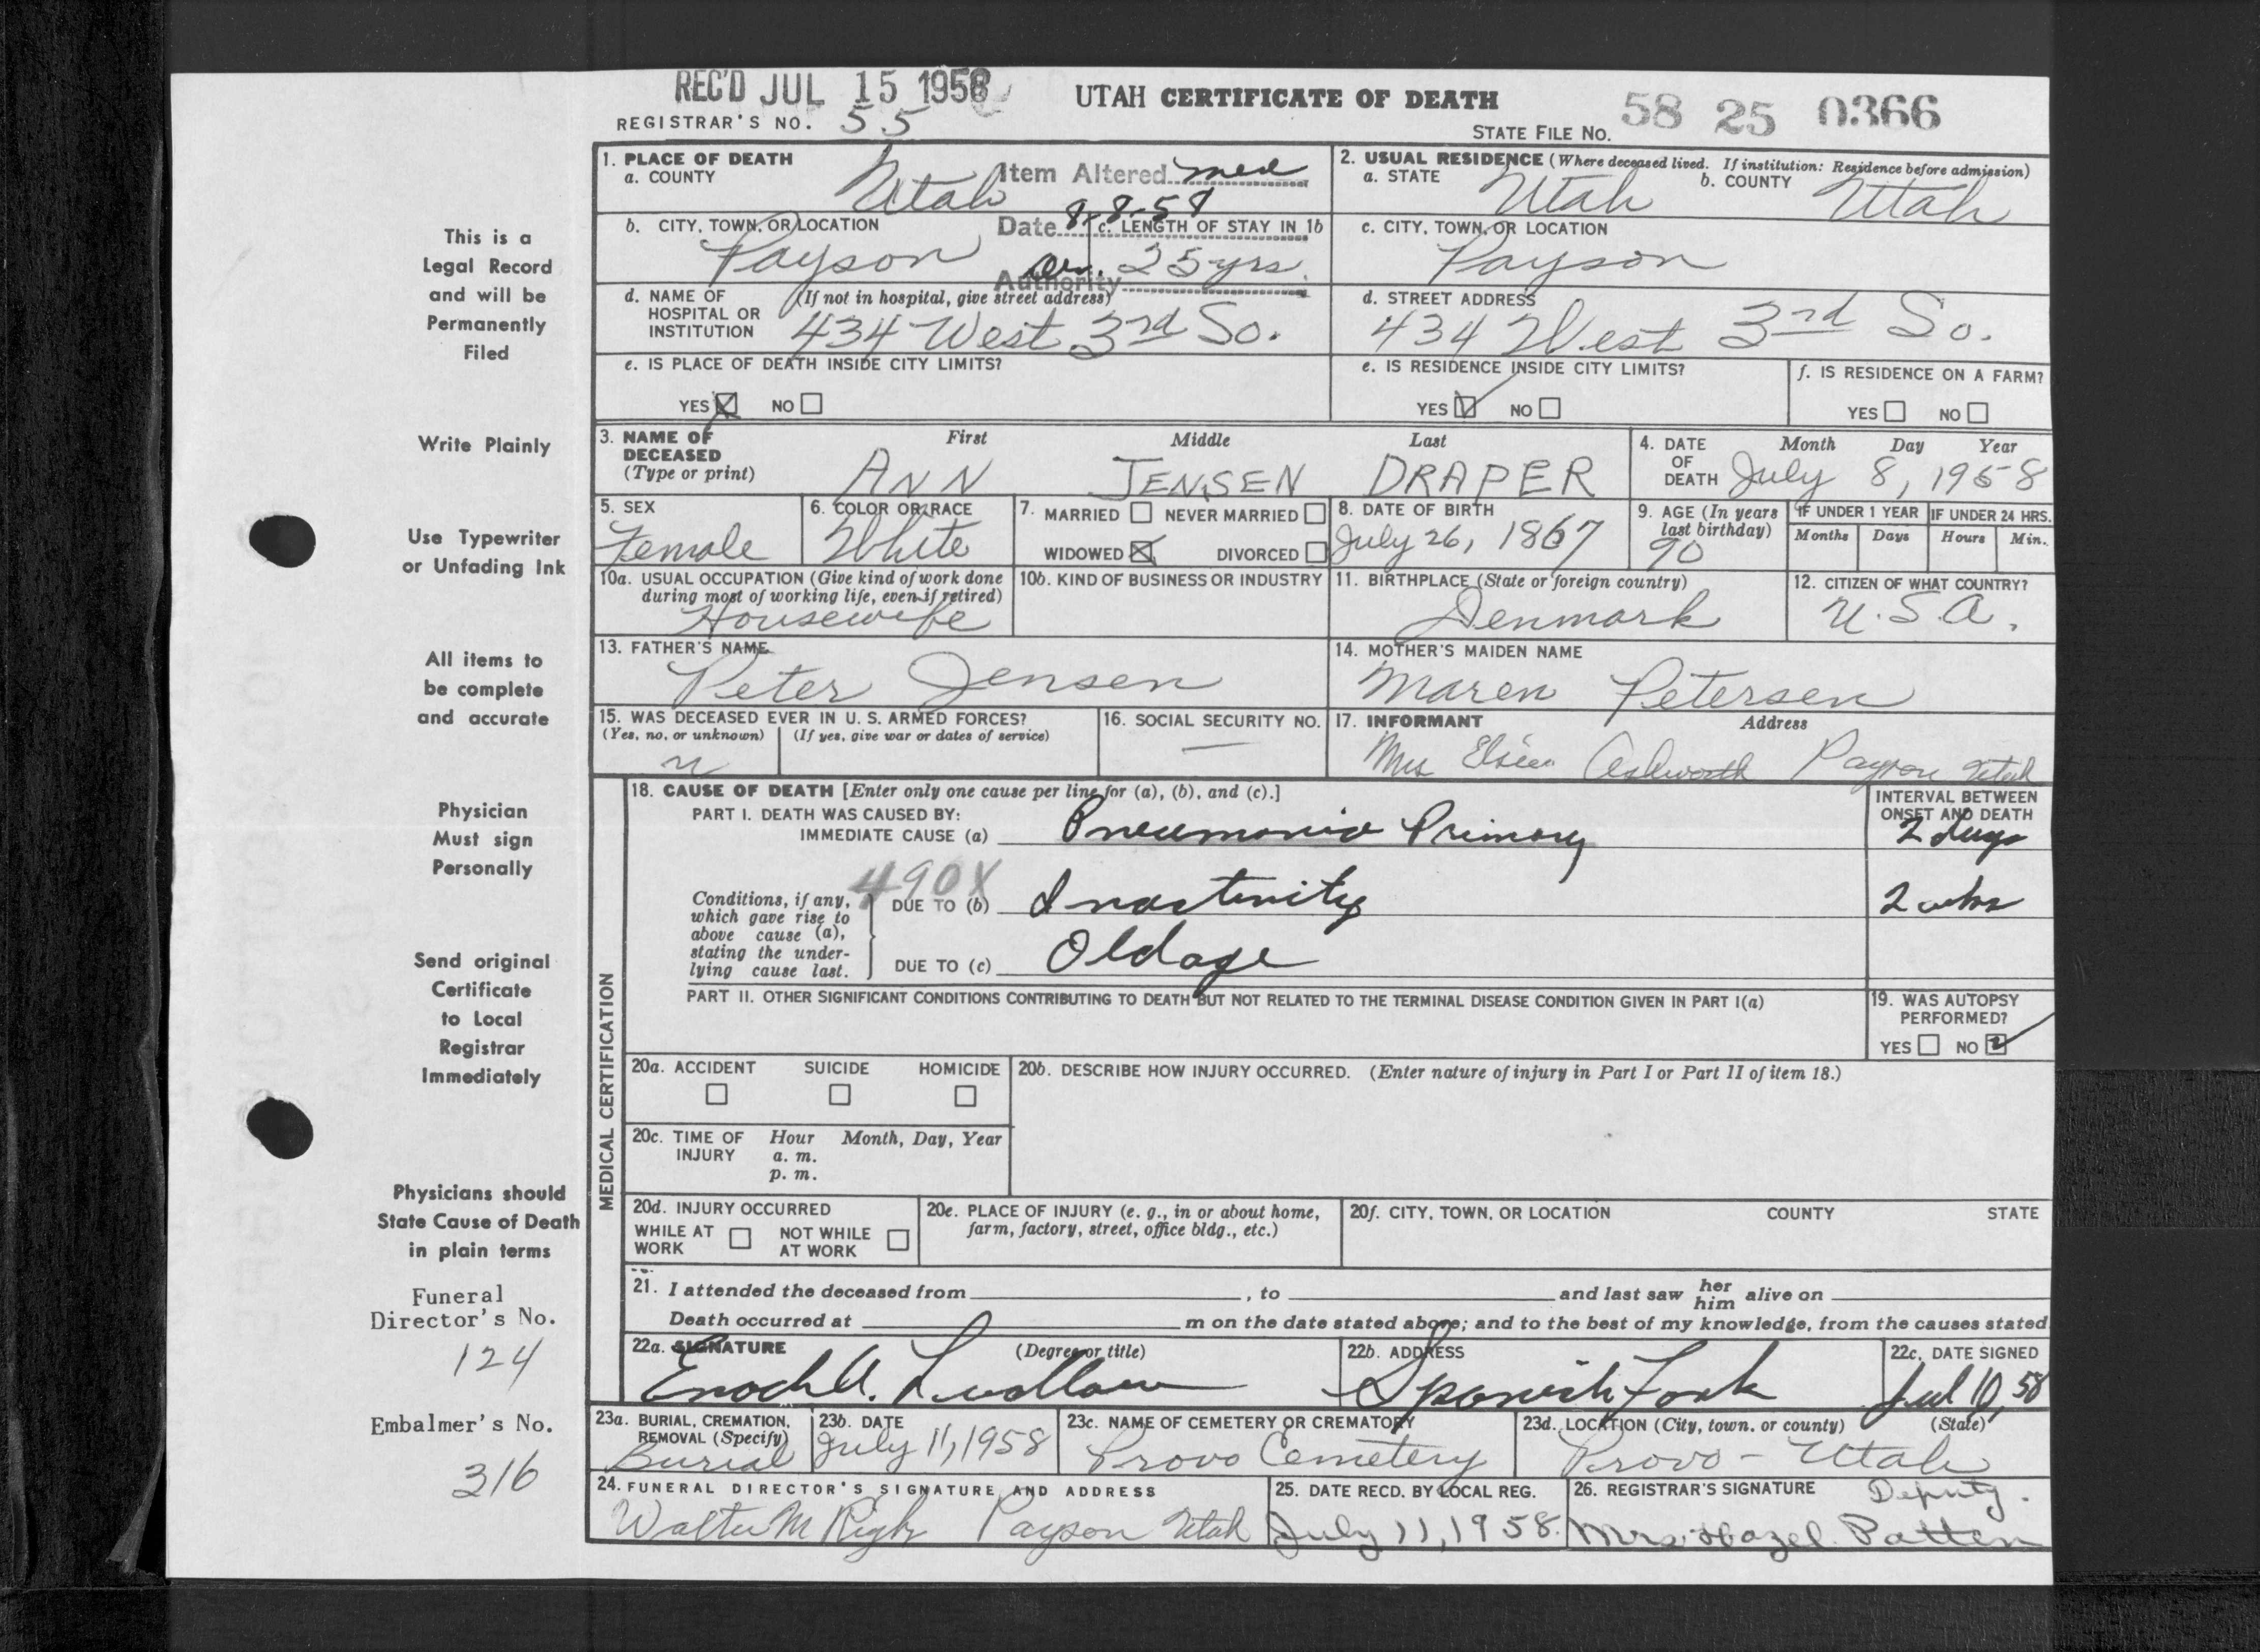 REC'D JUL 15 1958
UTAH CERTIFICATE OF DEATH
REGISTRAR'S NO. 55
STATE FILE NO. 58 25 0366
This is a
Legal Record
and will be
Permanently
Filed
Write Plainly
Use Typewriter
or Unfading Ink
All items to
be complete
and accurate
Physician
Must sign
Personally
Send original
Certificate
to Local
Registrar
Immediately
Physicians should
State Cause of Death
in plain terms
Funeral
Director's No.
124
Embalmer's No.
316
1. PLACE OF DEATH
a. COUNTY Utah
Item Altered med
Date 8-8-58
Authority
2. USUAL RESIDENCE (Where deceased lived. If institution: Residence before admission)
a. STATE Utah b. COUNTY Utah
b. CITY, TOWN, OR LOCATION Payson
c. LENGTH OF STAY IN 1b 25 yrs.
c. CITY, TOWN, OR LOCATION
Payson
d. NAME OF HOSPITAL OR INSTITUTION (If not in hospital, give street address)
434 West 3rd So.
d. STREET ADDRESS
434 West 3rd So.
e. IS PLACE OF DEATH INSIDE CITY LIMITS?
YES NO
e. IS RESIDENCE INSIDE CITY LIMITS?
YES NO
f. IS RESIDENCE ON A FARM?
YES NO
3. NAME OF DECEASED (Type or print) First Middle Last
ANN JENSEN DRAPER
4. DATE OF DEATH Month Day Year
July 8, 1958
5. SEX
Female
6. COLOR OR RACE
White
7. MARRIED NEVER MARRIED
WIDOWED DIVORCED
8. DATE OF BIRTH
July 26, 1867
9. AGE (In years last birthday)
90
IF UNDER 1 YEAR IF UNDER 24 HRS.
Months Days Hours Min.
10a. USUAL OCCUPATION (Give kind of work done during most of working life, even if retired)
Housewife
10b. KIND OF BUSINESS OR INDUSTRY
11. BIRTHPLACE (State or foreign country)
Denmark
12. CITIZEN OF WHAT COUNTRY?
U.S.A.
13. FATHER'S NAME
Peter Jensen
14. MOTHER'S MAIDEN NAME
Maren Petersen
15. WAS DECEASED EVER IN U. S. ARMED FORCES?
(Yes, no, or unknown) (If yes, give war or dates of service)
n
16. SOCIAL SECURITY NO.
—
17. INFORMANT Address
Mrs Ashworth Payson Utah
MEDICAL CERTIFICATION
18. CAUSE OF DEATH [Enter only one cause per line for (a), (b), and (c).]
INTERVAL BETWEEN ONSET AND DEATH
PART I. DEATH WAS CAUSED BY:
IMMEDIATE CAUSE (a) Pneumonia Primary 2 days
490X
Conditions, if any, which gave rise to above cause (a), stating the underlying cause last.
DUE TO (b) Inactivity 2 wks
DUE TO (c) Old age
PART II. OTHER SIGNIFICANT CONDITIONS CONTRIBUTING TO DEATH BUT NOT RELATED TO THE TERMINAL DISEASE CONDITION GIVEN IN PART I(a)
19. WAS AUTOPSY PERFORMED?
YES NO
20a. ACCIDENT SUICIDE HOMICIDE
20b. DESCRIBE HOW INJURY OCCURRED. (Enter nature of injury in Part I or Part II of item 18.)
20c. TIME OF INJURY Hour Month, Day, Year
a. m.
p. m.
20d. INJURY OCCURRED
WHILE AT WORK NOT WHILE AT WORK
20e. PLACE OF INJURY (e. g., in or about home, farm, factory, street, office bldg., etc.)
20f. CITY, TOWN, OR LOCATION COUNTY STATE
21. I attended the deceased from , to and last saw her him alive on
Death occurred at m on the date stated above; and to the best of my knowledge, from the causes stated
22a. SIGNATURE (Degree or title)
Enoch A. Ludlow
22b. ADDRESS
Spanish Fork
22c. DATE SIGNED
Jul 10, 58
23a. BURIAL, CREMATION, REMOVAL (Specify)
Burial
23b. DATE
July 11, 1958
23c. NAME OF CEMETERY OR CREMATORY
Provo Cemetery
23d. LOCATION (City, town, or county) (State)
Provo - Utah
24. FUNERAL DIRECTOR'S SIGNATURE AND ADDRESS
Walter M Payson Utah
25. DATE RECD. BY LOCAL REG.
July 11, 1958.
26. REGISTRAR'S SIGNATURE Deputy.
Mrs. Hazel Patten